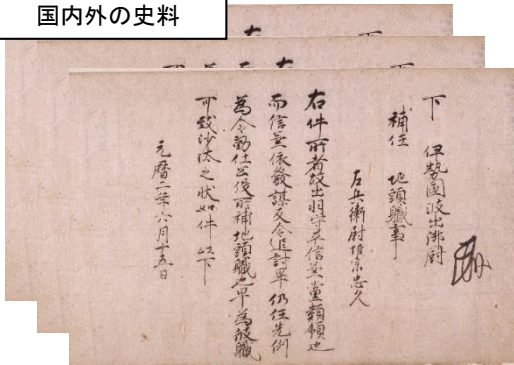 国内外の史料
下　伊勢國波出御厨
補任　地頭職事
左兵衛尉惟宗忠久
右件所者故出羽守平信兼黨類領也
而信兼依發謀反令追討畢仍任先例
為令勤仕公役所補地頭職也早為彼職
可致沙汰之状如件　以下
元暦二年六月十五日